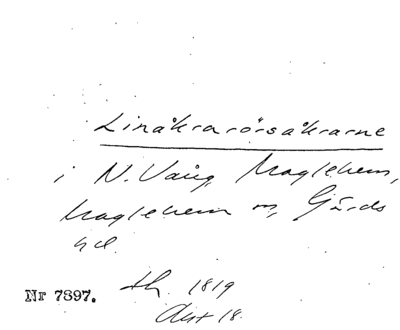 Linåkrarörsåkrarne
i N. Vång, Maglehem,
Maglehem sn, Gärds
hd.
Nr 7397. th. 1819
Akt 18.